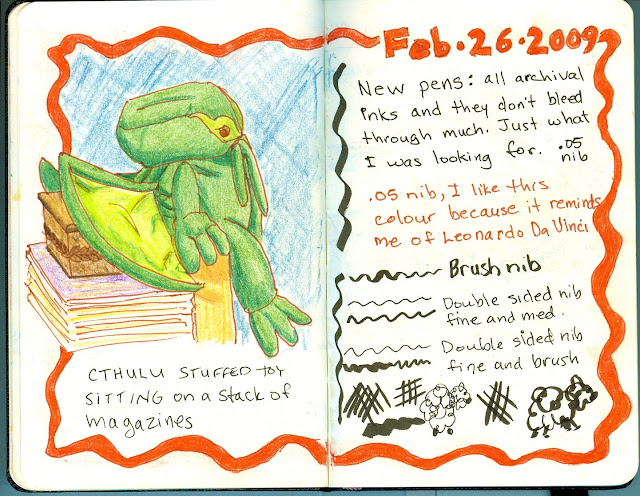 CTHULU STUFFED TOY
SITTING on a stack of
magazines
Feb. 26. 2009
New pens: all archival
inks and they don't bleed
through much. Just what
I was looking for. .05
nib
.05 nib, I like this
colour because it reminds
me of Leonardo Da Vinci
Brush nib
Double sided nib
fine and med.
Double sided nib
fine and brush